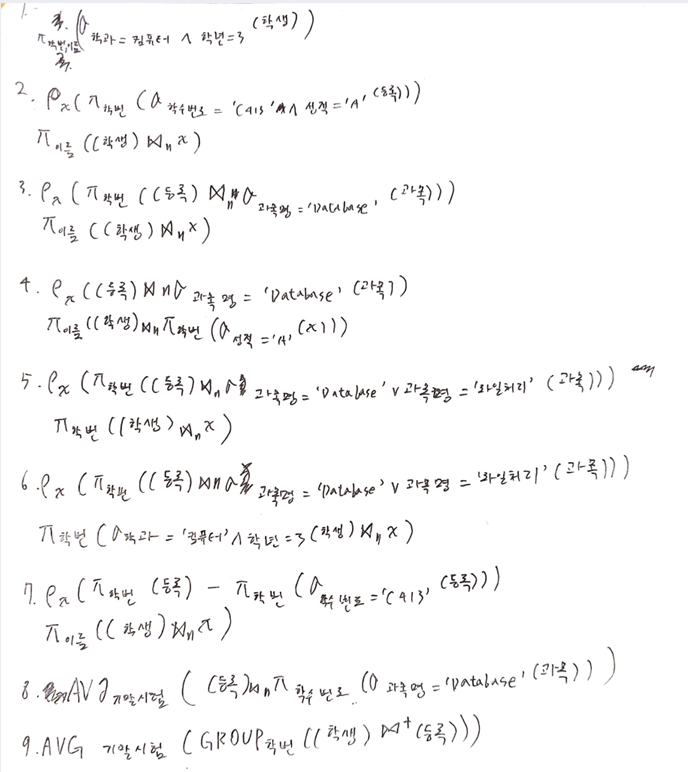 1. π 학번,이름 (σ 학과=컴퓨터 ∧ 학년=3 (학생))
2. ρx (π 학번 (σ 학수번호 = 'C413' ∧ 성적 = 'A' (등록)))
π 이름 ((학생) ⋈n x)
3. ρx (π 학번 ((등록) ⋈n σ 과목명 = 'Database' (과목)))
π 이름 ((학생) ⋈n x)
4. ρx ((등록) ⋈n σ 과목명 = 'Database' (과목))
π 이름 ((학생) ⋈n π 학번 (σ 성적 = 'A' (x)))
5. ρx (π 학번 ((등록) ⋈n σ 과목명 = 'Database' ∨ 과목명 = '화일처리' (과목)))
π 학번 ((학생) ⋈n x)
6. ρx (π 학번 ((등록) ⋈n σ 과목명 = 'Database' ∨ 과목명 = '화일처리' (과목)))
π 학번 (σ 학과 = '컴퓨터' ∧ 학년 = 3 (학생) ⋈n x)
7. ρx (π 학번 (등록) − π 학번 (σ 학수번호 = 'C413' (등록)))
π 이름 ((학생) ⋈n x)
8. AVG 기말시험 ((등록) ⋈n π 학수번호 (σ 과목명 = 'Database' (과목)))
9. AVG 기말시험 (GROUP 학번 ((학생) ⋈+ (등록)))